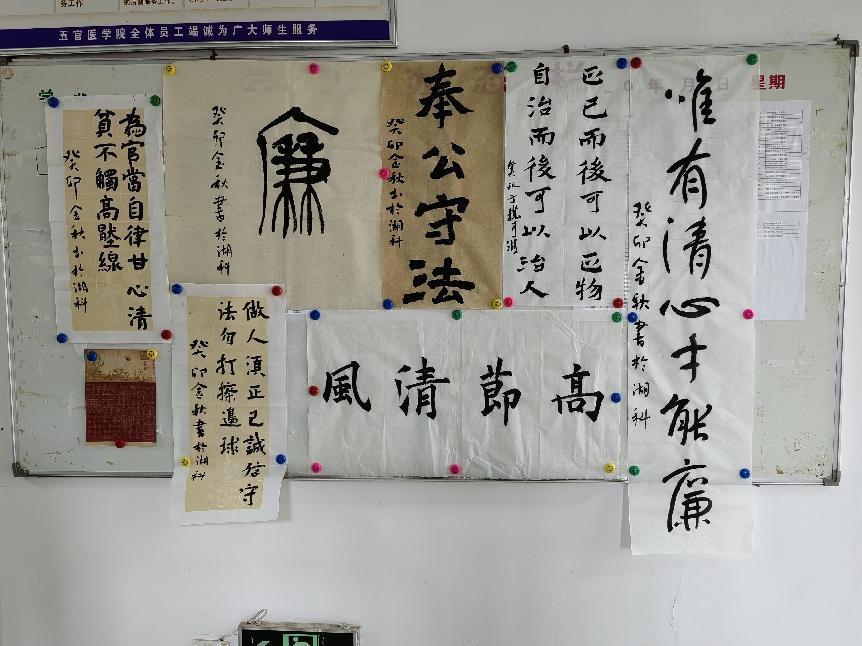 五官医学院全体员工竭诚为广大师生服务
年 月 日 星期
唯有清心才能廉
癸卯金秋書於湖科
正己而後可以正物
自治而後可以治人
奉公守法
癸卯金秋书於湖科
廉
癸卯金秋書於湖科
為官當自律甘心清
貧不觸高壓線
癸卯金秋书於湖科
做人須正己誠信守
法勿打擦邊球
癸卯金秋書於湖科
高節清風